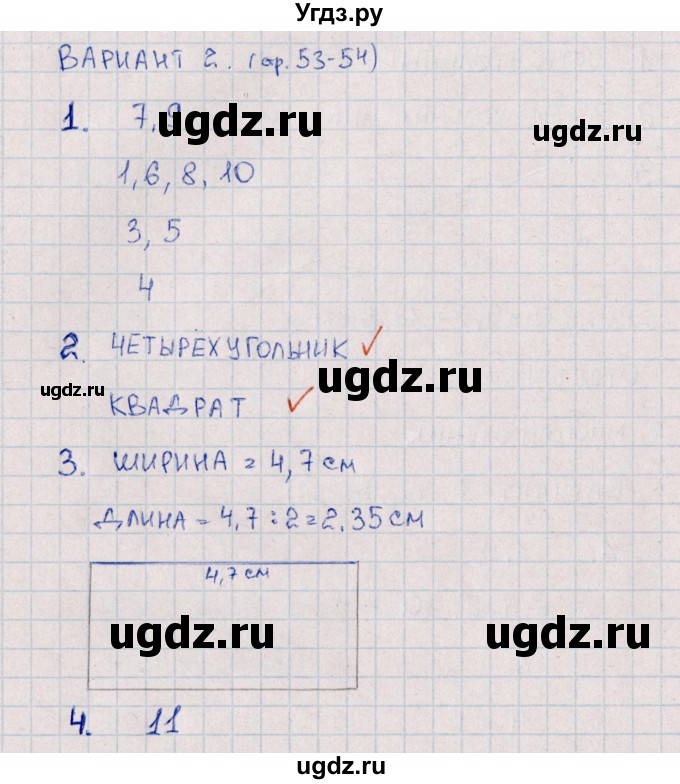 Угдз.ру
ВАРИАНТ 2. (стр. 53-54)
1. 7, 9
ugdz.ru
ugdz.ru
1, 6, 8, 10
3, 5
4
2. ЧЕТЫРЕХУГОЛЬНИК ✓
ugdz.ru
ugdz.ru
КВАДРАТ ✓
3. ШИРИНА = 4,7 см
ДЛИНА = 4,7 : 2 = 2,35 см
4,7 см
ugdz.ru
ugdz.ru
4. 11